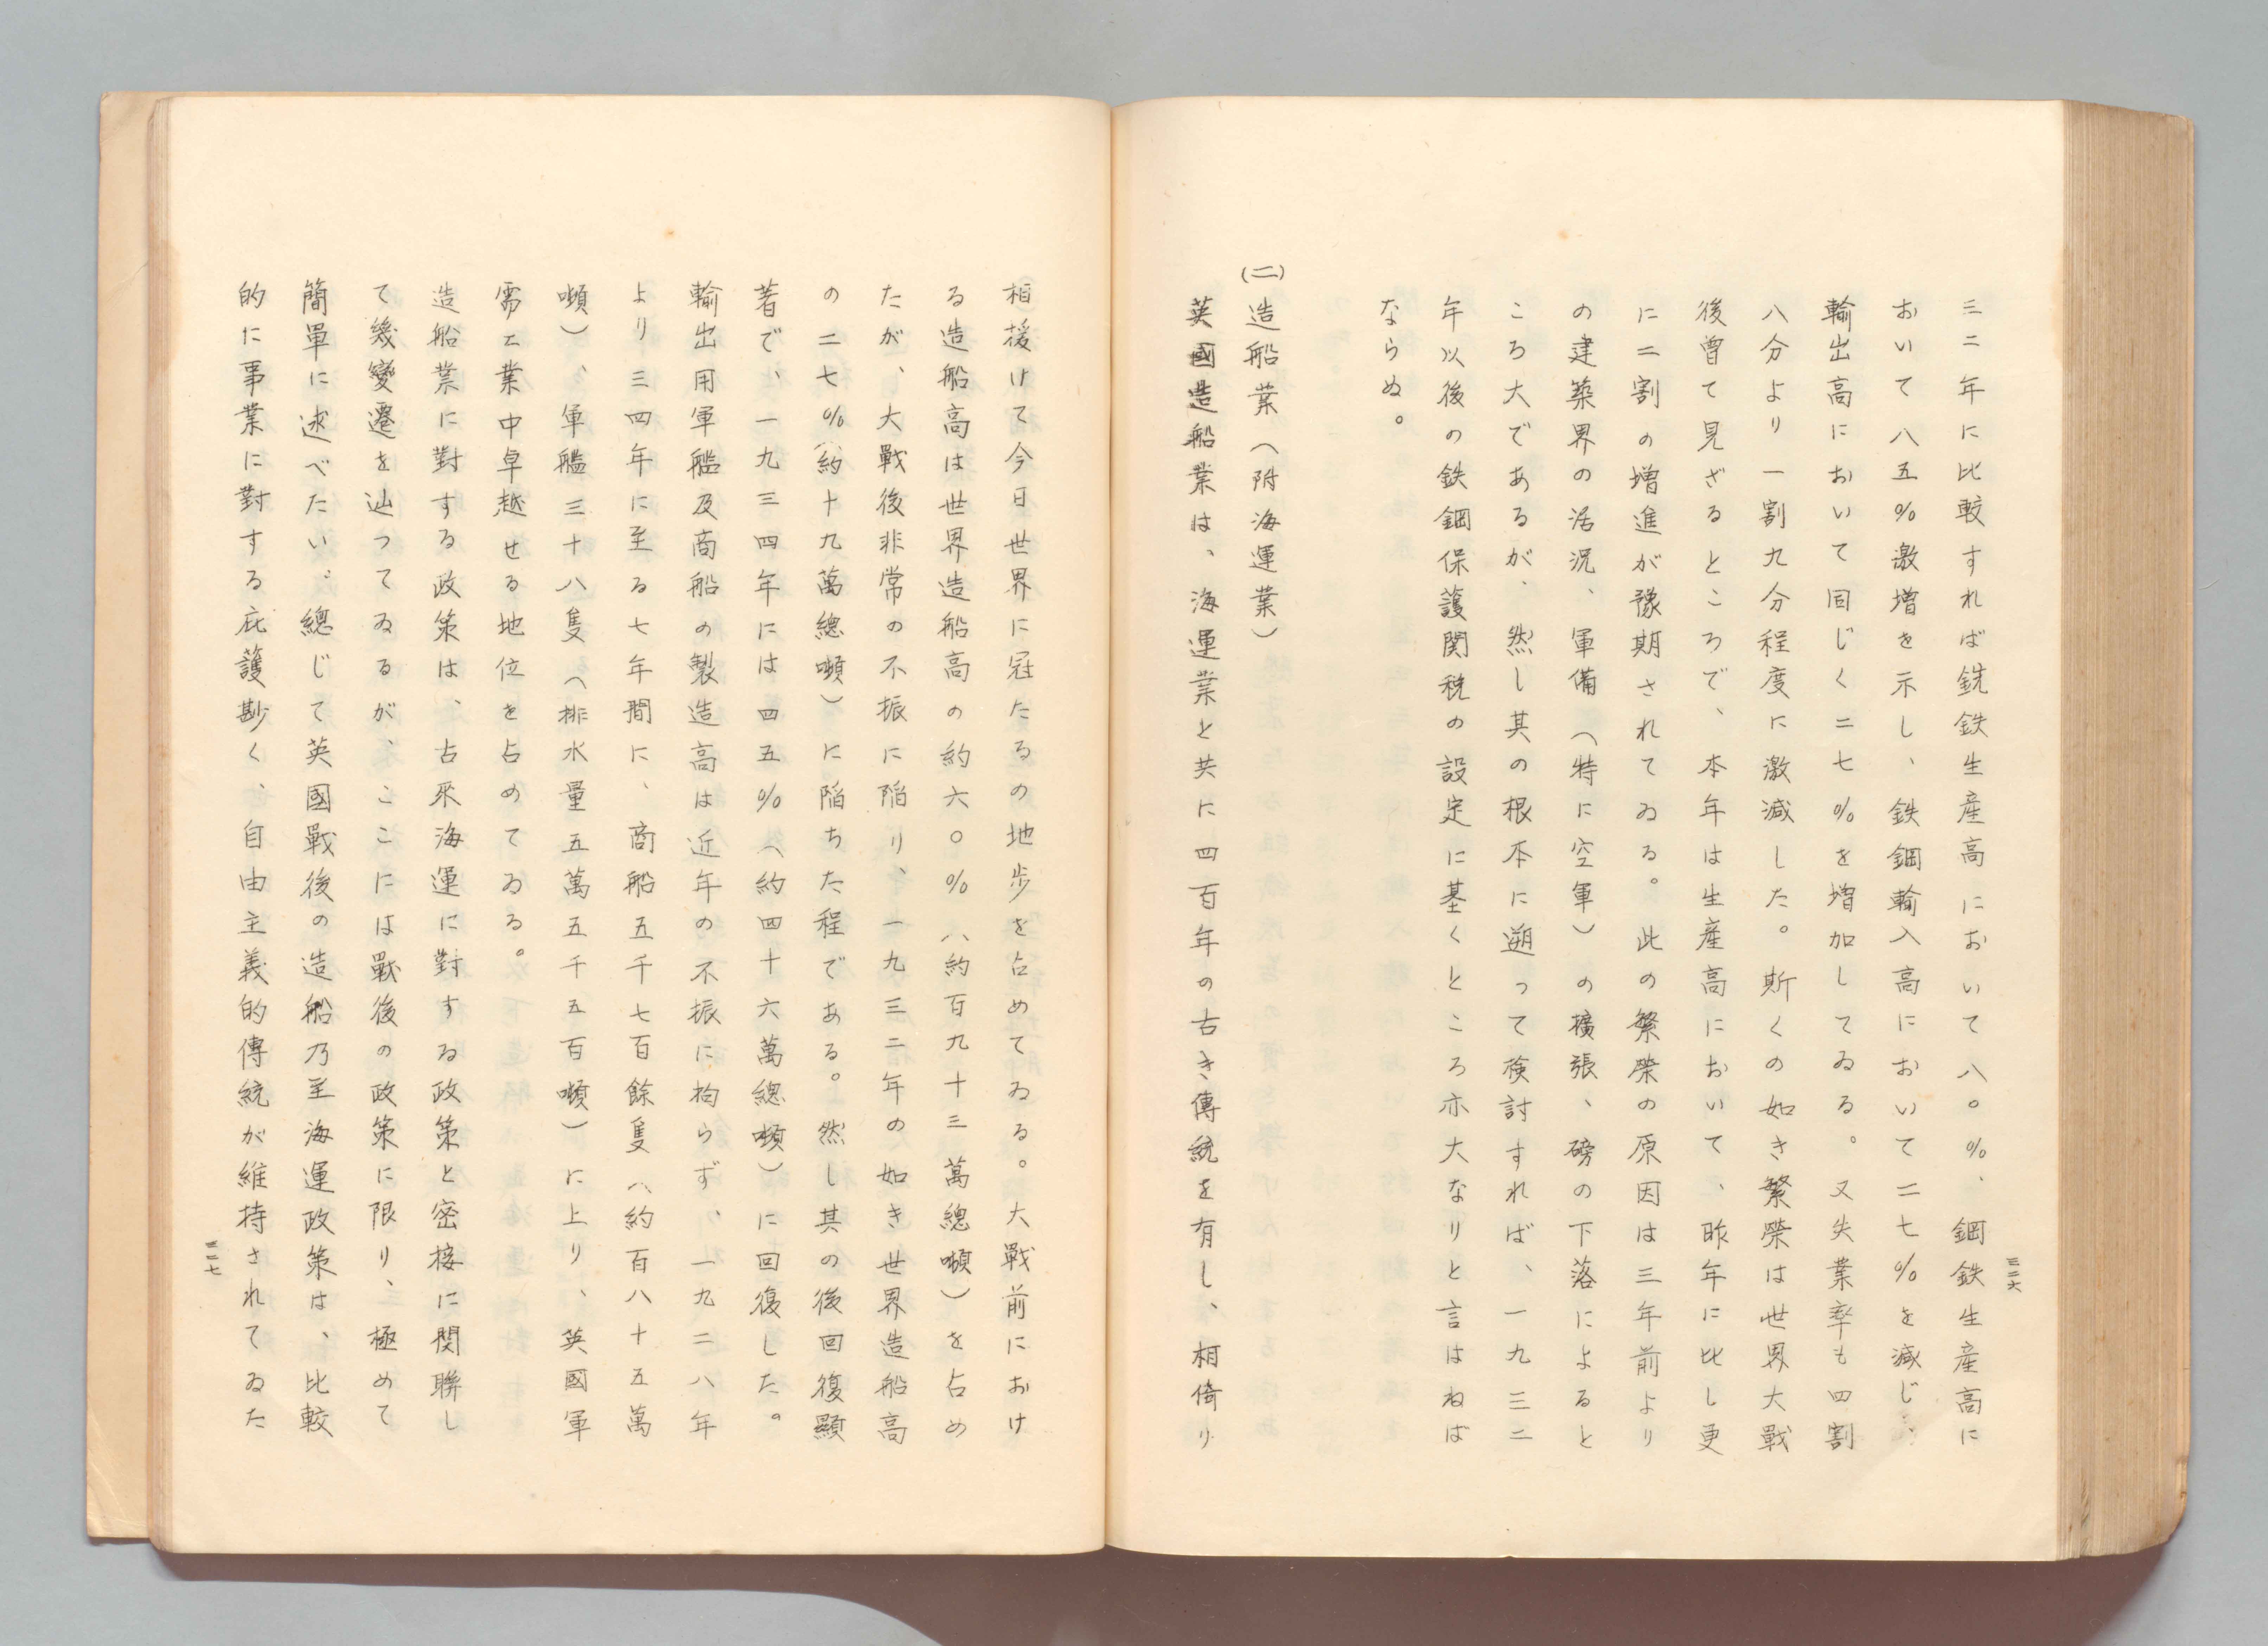 三二年に比較すれば銑鉄生産高において八〇%、鋼鉄生産高に
おいて八五%激増を示し、鉄鋼輸入高において二七%を減じ、
輸出高において同じく二七%を増加してゐる。又失業率も四割
八分より一割九分程度に激減した。斯くの如き繁榮は世界大戰
後曽て見ざるところで、本年は生産高において、昨年に比し更
に二割の増進が豫期されてゐる。此の繁榮の原因は三年前より
の建築界の活況、軍備(特に空軍)の擴張、磅の下落によると
ころ大であるが、然し其の根本に遡って検討すれば、一九三二
年以後の鉄鋼保護関税の設定に基くところ亦大なりと言はねば
ならぬ。
(二)造船業(附海運業)
英國造船業は、海運業と共に四百年の古き傳統を有し、相倚り
三二六
相援けて今日世界に冠たるの地歩を占めてゐる。大戰前におけ
る造船高は世界造船高の約六〇%(約百九十三萬總噸)を占め
たが、大戰後非常の不振に陥り、一九三二年の如き世界造船高
の二七%(約十九萬總噸)に陥ちた程である。然し其の後回復顯
著で、一九三四年には四五%(約四十六萬總噸)に回復した。
輸出用軍艦及商船の製造高は近年の不振に拘らず、一九二八年
より三四年に至る七年間に、商船五千七百餘隻(約百八十五萬
噸)、軍艦三十八隻(排水量五萬五千五百噸)に上り、英國軍
需工業中卓越せる地位を占めてゐる。
造船業に對する政策は、古來海運に對する政策と密接に関聯し
て幾變遷を辿ってゐるが、ここには戰後の政策に限り、極めて
簡單に述べたい。總じて英國戰後の造船乃至海運政策は、比較
的に事業に對する庇護尠く、自由主義的傳統が維持されてゐた
三二七